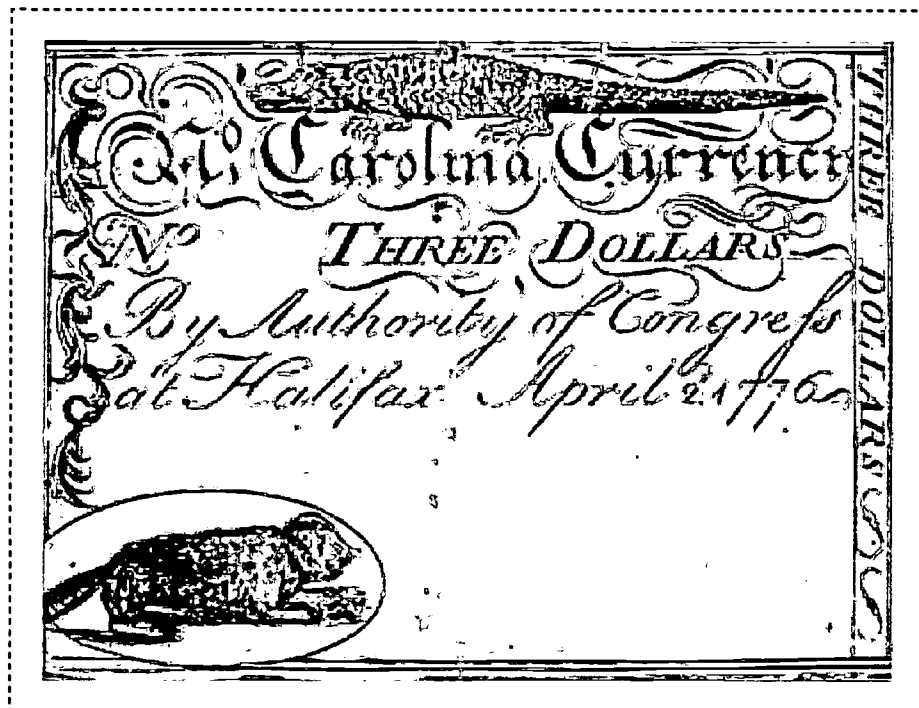 No. Carolina Currency
No THREE DOLLARS
By Authority of Congreſs
at Halifax April 2 1776
THREE DOLLARS